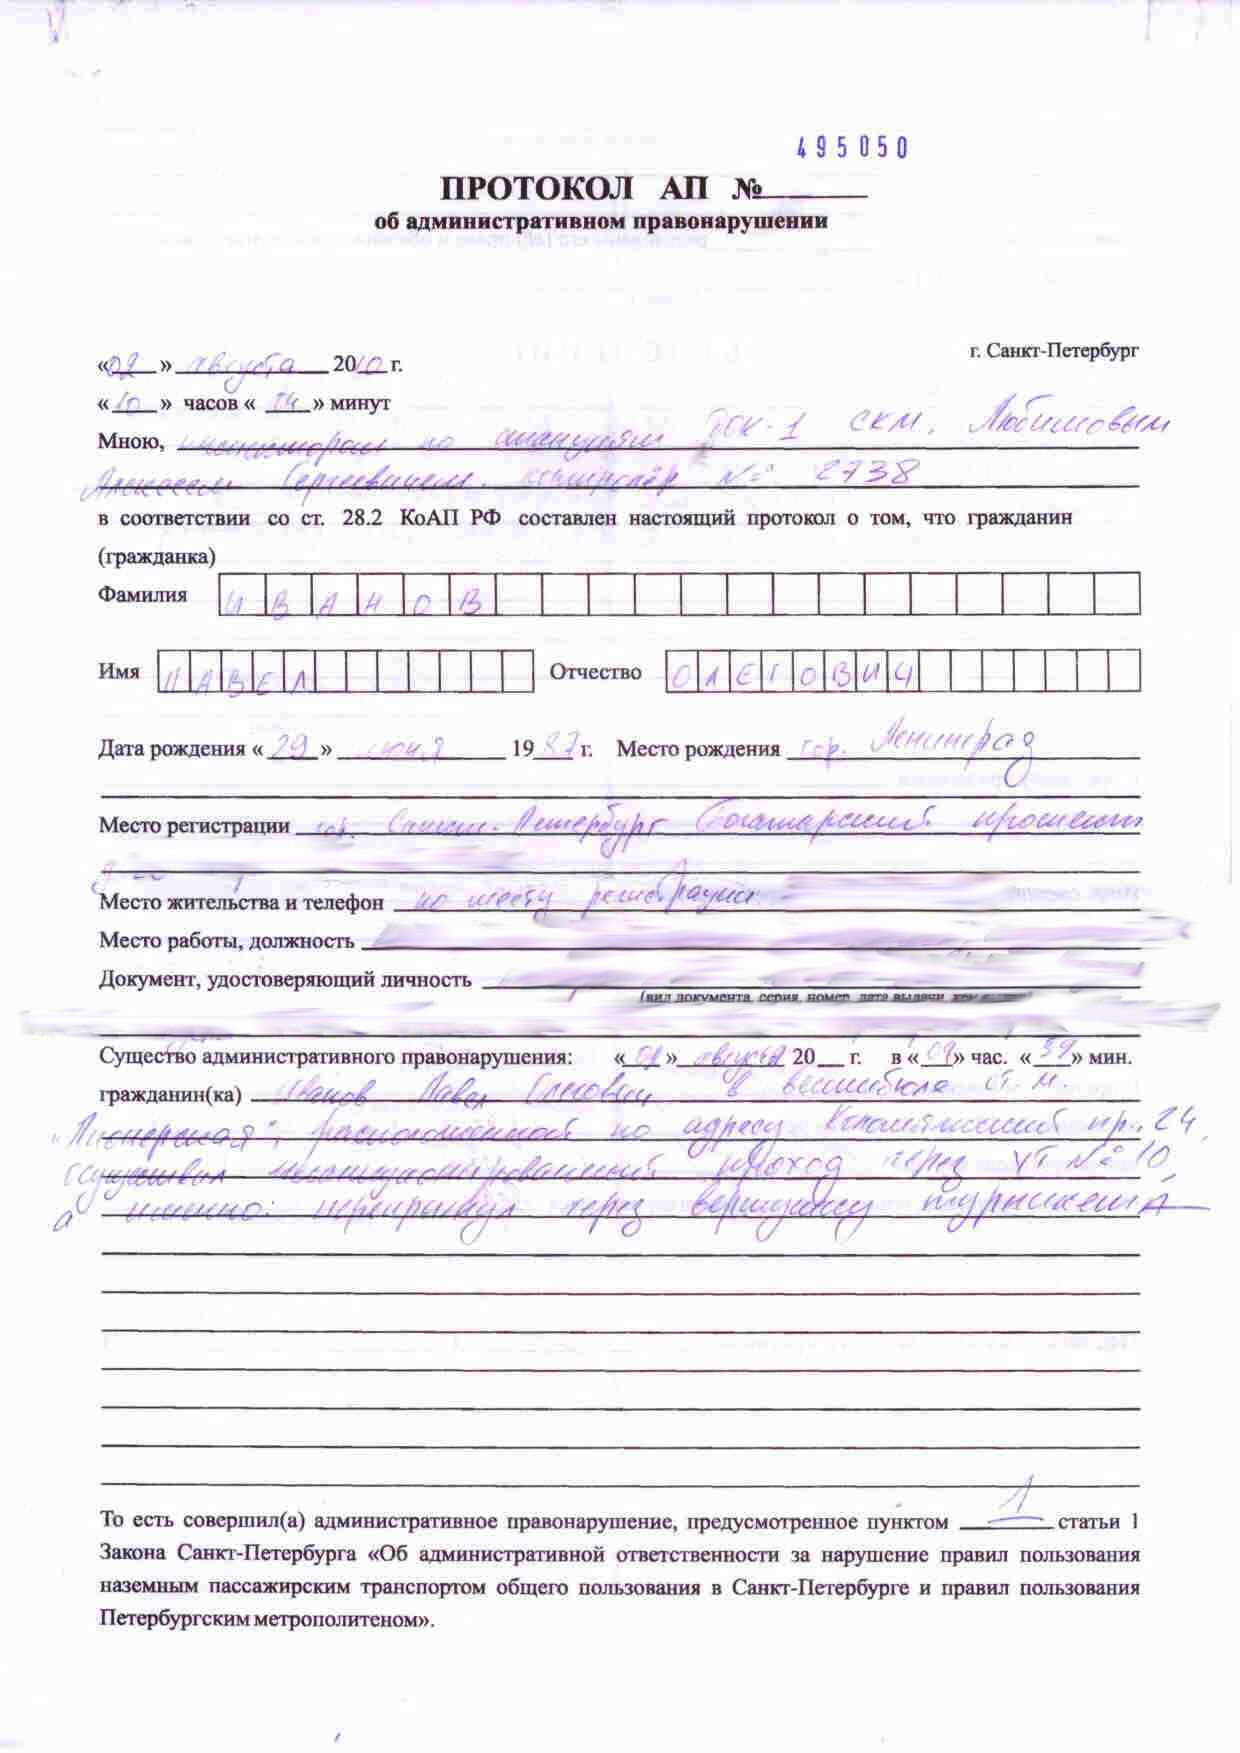 495050
ПРОТОКОЛ АП №
об административном правонарушении
г. Санкт-Петербург
«02» августа 2010 г.
«10» часов «14» минут
Мною, инспектором по станциям ТОК-1 СКМ. Любимовым
Алексеем Сергеевичем. контролёр № 2738
в соответствии со ст. 28.2 КоАП РФ составлен настоящий протокол о том, что гражданин
(гражданка)
Фамилия ИВАНОВ
Имя ПАВЕЛ Отчество ОЛЕГОВИЧ
Дата рождения «29» июня 1987 г. Место рождения гор. Ленинград
Место регистрации гор. Санкт-Петербург Богатырский проспект
Место жительства и телефон по месту регистрации
Место работы, должность
Документ, удостоверяющий личность
(вид документа, серия, номер, дата выдачи, кем выдан)
Существо административного правонарушения: «02» августа 20 г. в «09» час. «59» мин.
гражданин(ка) Иванов Павел Олегович в вестибюле ст. м.
"Пионерская", расположенной по адресу Коломяжский пр., 24,
осуществил несанкционированный проход через УТ № 10,
а именно: перепрыгнул через вершину турникета
То есть совершил(а) административное правонарушение, предусмотренное пунктом 1 статьи 1
Закона Санкт-Петербурга «Об административной ответственности за нарушение правил пользования
наземным пассажирским транспортом общего пользования в Санкт-Петербурге и правил пользования
Петербургским метрополитеном».